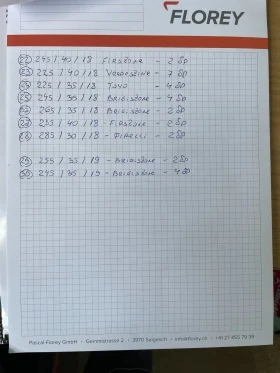 FLOREY
22 245/40/18 FIRSTONE - 2 SD
23 225/40/18 VREDESTINE - 3 SD
24 225/35/18 TOYO - 4 SD
25 245/35/18 BRIGISTONE - 4 SD
26 265/35/18 BRIGISTONE - 2 SD
27 235/40/18 - FIRSTONE - 2 SD
28 285/30/18 - PIRELLI - 2 SD
29 255/35/19 - BRIGISTONE - 2 SD
30 245/35/19 - BRIGISTONE - 4 SD
Pascal Florey GmbH • Gemmistrasse 2 • 3970 Salgesch • info@florey.ch • +41 27 455 79 39